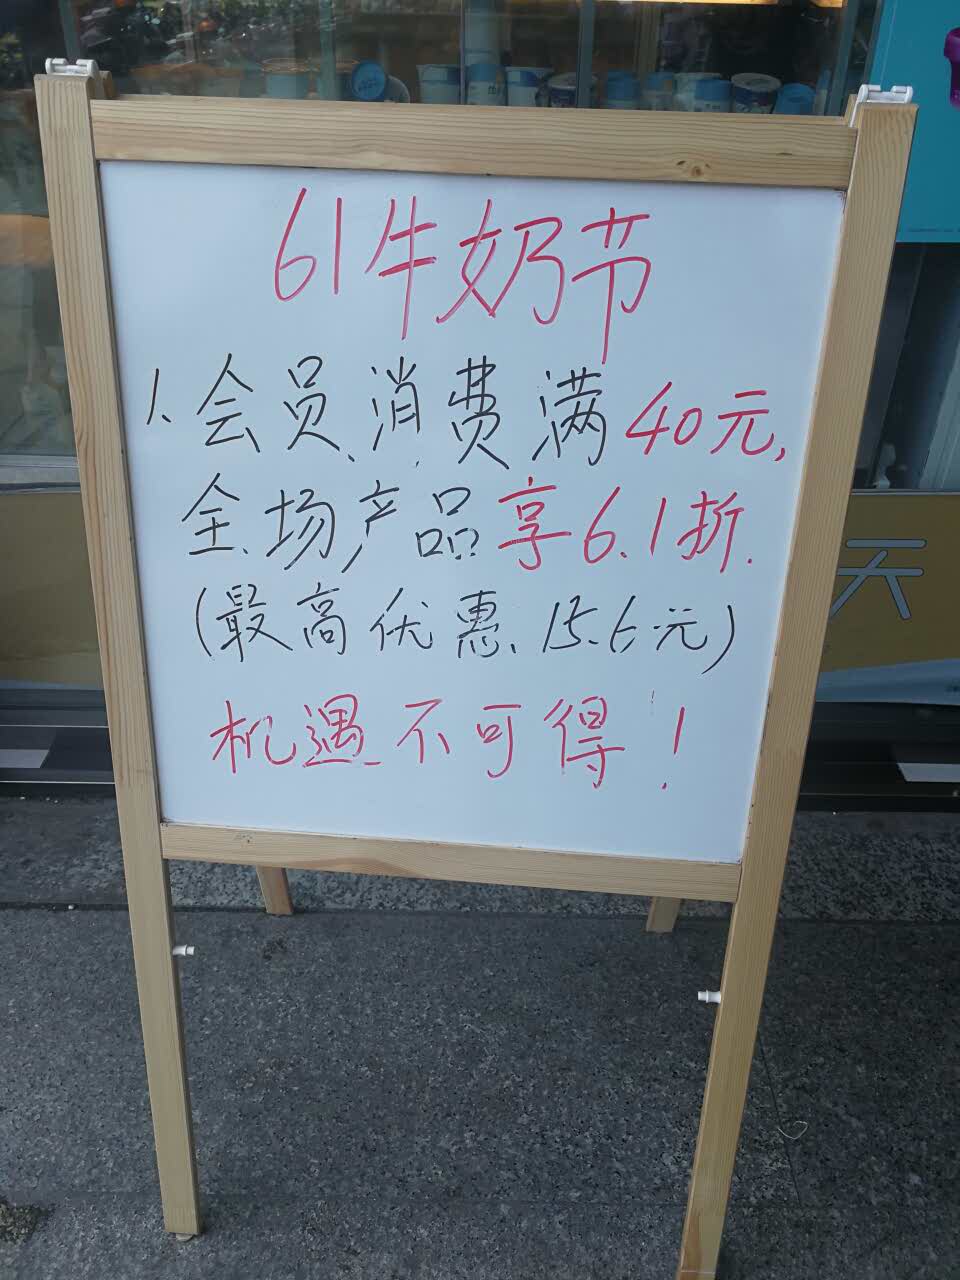 61牛奶节
1、会员消费满40元,
全场产品享6.1折.
(最高优惠15.6元)
机遇不可得!
天